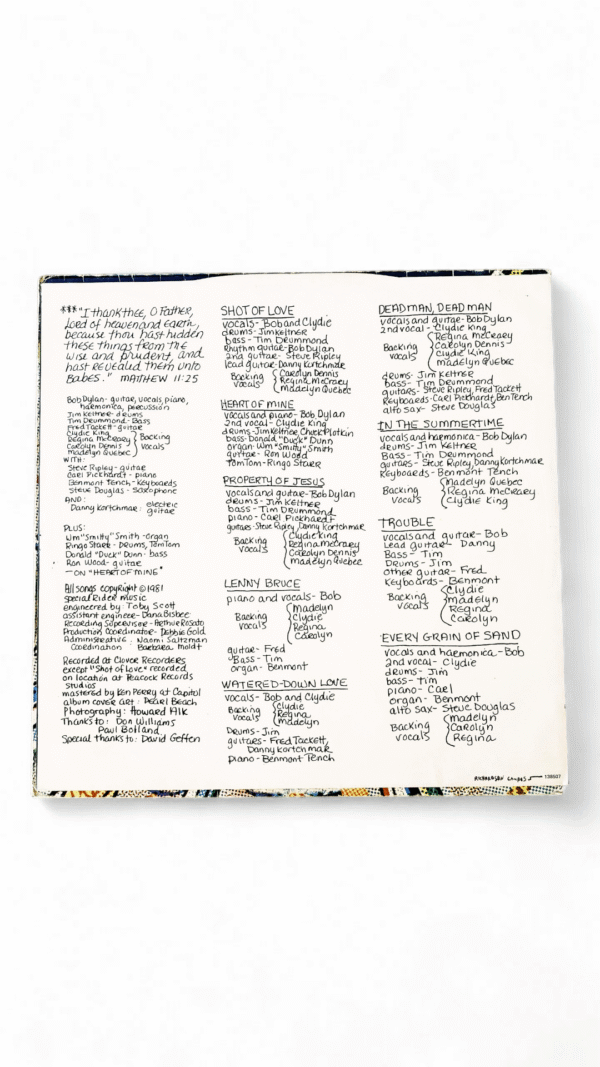 *** "I thank thee, O Father,
Lord of heaven and earth,
because thou hast hidden
these things from the
wise and prudent, and
hast revealed them unto
Babes." MATTHEW 11:25
Bob Dylan - guitar, vocals, piano,
harmonica, percussion
Jim Keltner - drums
Tim Drummond - Bass
Fred Tackett - guitar
Clydie King
Regina McCreary
Carolyn Dennis
Madelyn Quebec
Backing
vocals
WITH:
Steve Ripley - guitar
Carl Pickhardt - piano
Benmont Tench - Keyboards
Steve Douglas - saxophone
AND:
Danny Kortchmar: electric
guitar
PLUS:
Wm "Smitty" Smith - organ
Ringo Starr - Drums, TomTom
Donald "Duck" Dunn - bass
Ron Wood - guitar
— ON "HEART OF MINE"
All songs copyright © 1981
Special Rider Music
engineered by: Toby Scott
assistant engineer - Dana Bisbee
Recording Supervisor - Arthur Rosato
Production Coordinator - Debbie Gold
Administrative: Naomi Saltzman
Coordination: Barbara Moldt
Recorded at Clover Recorders
except "Shot of Love" recorded
on location at Peacock Records
Studios
mastered by Ken Perry at Capitol
album cover art: Pearl Beach
Photography: Howard Alk
Thanks to: Don Williams
Paul
Special thanks to: David Geffen
SHOT OF LOVE
vocals - Bob and Clydie
drums - Jim Keltner
bass - Tim Drummond
Rhythm guitar - Bob Dylan
2nd guitar - Steve Ripley
lead guitar - Danny Kortchmar
Backing
vocals
Carolyn Dennis
Regina McCrary
Madelyn Quebec
HEART OF MINE
vocals and piano - Bob Dylan
2nd vocal - Clydie King
drums - Jim Keltner Chuck Plotkin
bass - Donald "Duck" Dunn
organ - Wm "Smitty" Smith
guitar - Ron Wood
TomTom - Ringo Starr
PROPERTY OF JESUS
vocals and guitar - Bob Dylan
drums - Jim Keltner
bass - Tim Drummond
piano - Carl Pickhardt
guitars - Steve Ripley, Danny Kortchmar
Backing
vocals
Clydie King
Regina McCrary
Carolyn Dennis
Madelyn Quebec
LENNY BRUCE
piano and vocals - Bob
Backing
vocals
Madelyn
Clydie
Regina
Carolyn
guitar - Fred
Bass - Tim
organ - Benmont
WATERED-DOWN LOVE
vocals - Bob and Clydie
Backing
vocals
Clydie
Regina
Madelyn
Drums - Jim
guitars - Fred Tackett,
Danny Kortchmar
piano - Benmont Tench
DEAD MAN, DEAD MAN
vocals and guitar - Bob Dylan
2nd vocal - Clydie King
Backing
vocals
Regina McCreary
Carolyn Dennis
Clydie King
Madelyn Quebec
drums - Jim Keltner
bass - Tim Drummond
guitars - Steve Ripley, Fred Tackett
Keyboards - Carl Pickhardt, Ben Tench
alto sax - Steve Douglas
IN THE SUMMERTIME
vocals and harmonica - Bob Dylan
drums - Jim Keltner
Bass - Tim Drummond
guitars - Steve Ripley, Danny Kortchmar
Keyboards - Benmont Tench
Backing
vocals
Madelyn Quebec
Regina McCreary
Clydie King
TROUBLE
vocals and guitar - Bob
Lead guitar - Danny
Bass - Tim
Drums - Jim
other guitar - Fred
Keyboards - Benmont
Backing
vocals
Clydie
Madelyn
Regina
Carolyn
EVERY GRAIN OF SAND
vocals and harmonica - Bob
2nd vocal - Clydie
drums - Jim
bass - Tim
piano - Carl
organ - Benmont
alto sax - Steve Douglas
Backing
vocals
Madelyn
Carolyn
Regina
138507